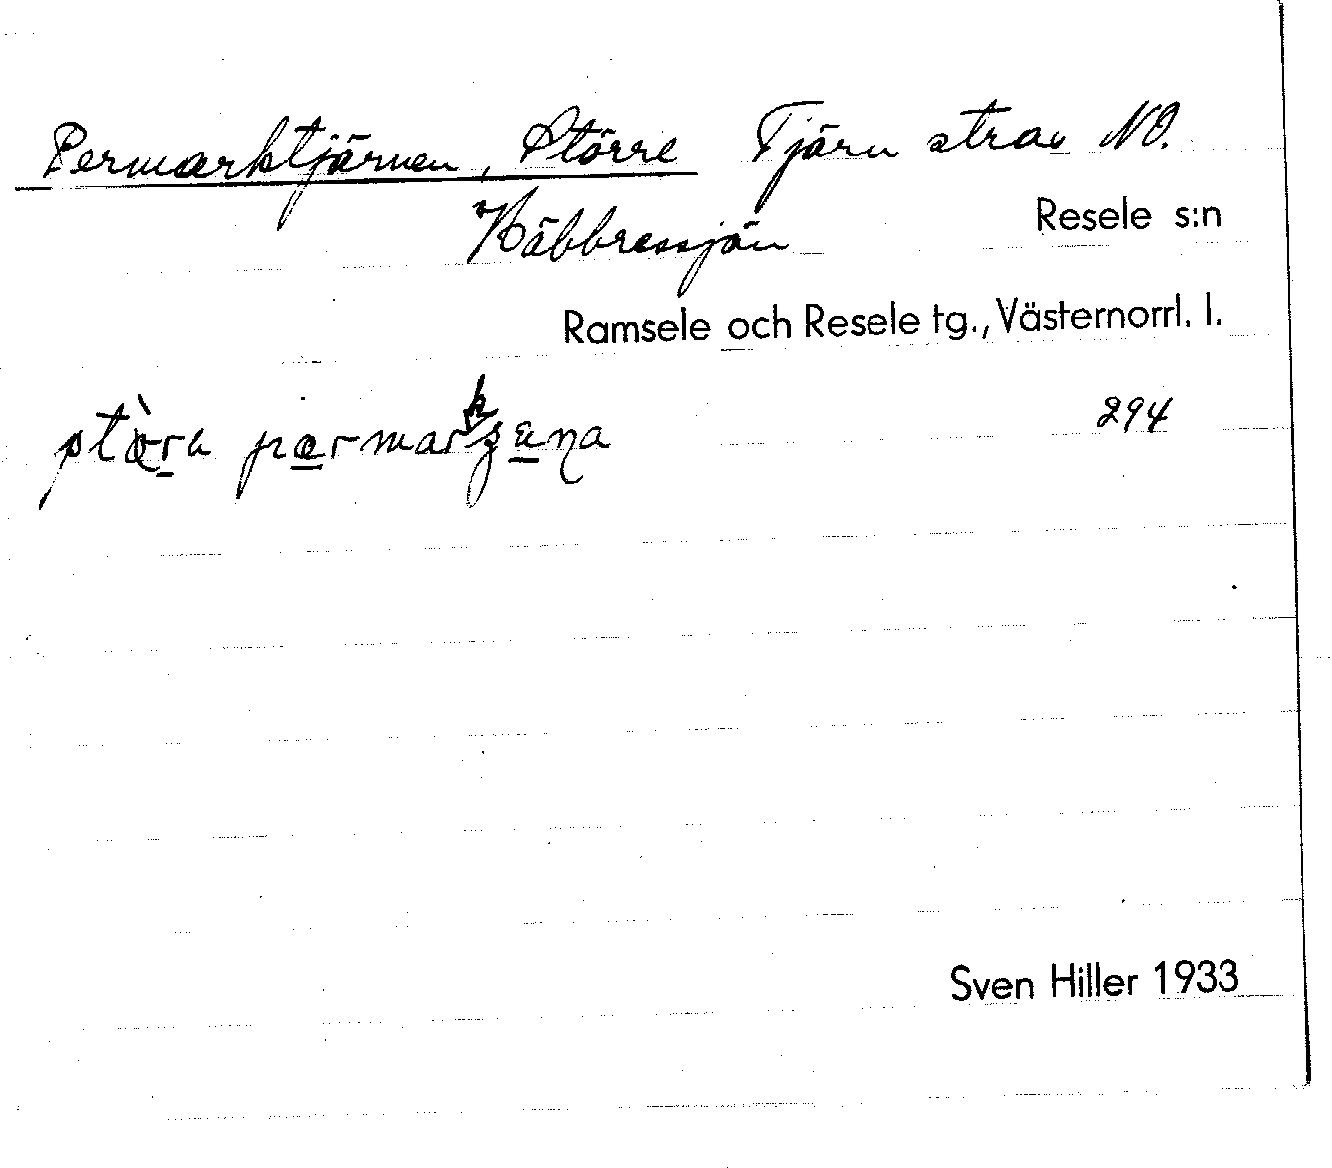 Permarktjärnen, Större Tjärn strax NO.
Käbbressjön
Resele s:n
Ramsele och Resele tg., Västernorrl. l.
294
Sven Hiller 1933